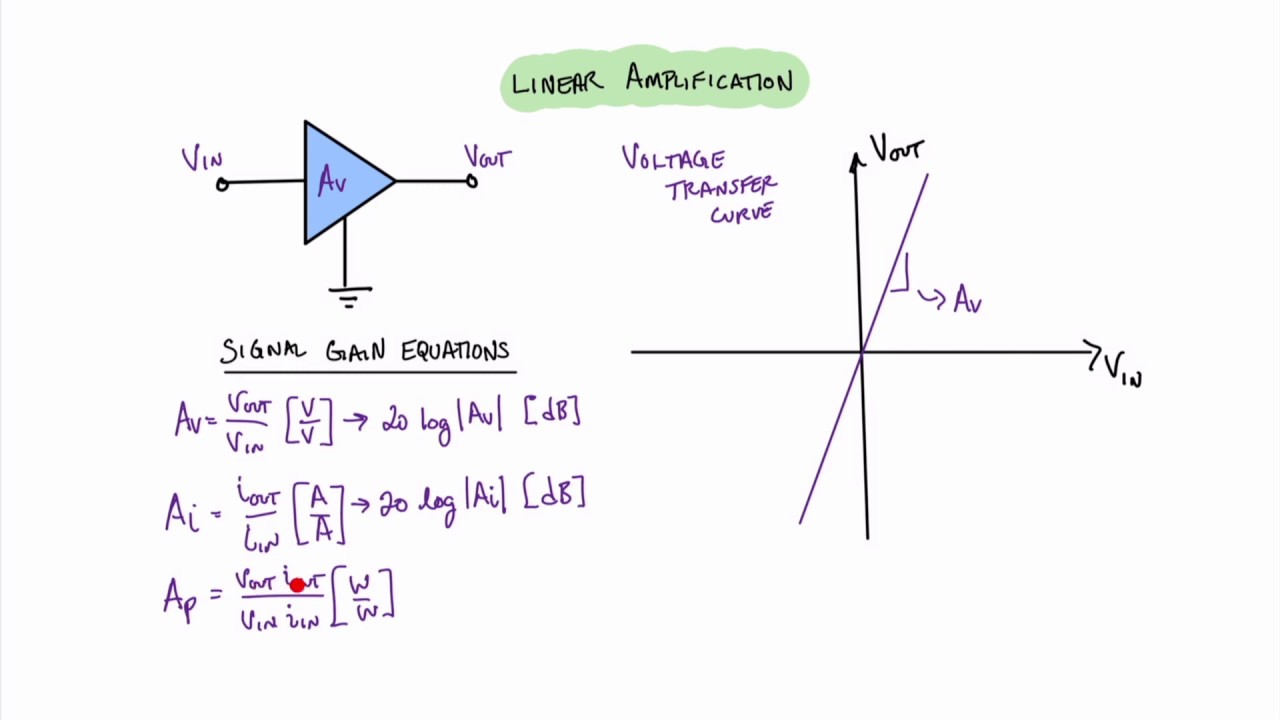 LINEAR AMPLIFICATION
VIN
AV
VOUT
VOLTAGE
TRANSFER
CURVE
VOUT
AV
VIN
SIGNAL GAIN EQUATIONS
AV = VOUT/VIN [V/V] → 20 log|AV| [dB]
Ai = iOUT/iIN [A/A] → 20 log|Ai| [dB]
Ap = VOUT iOUT/VIN iIN [W/W]